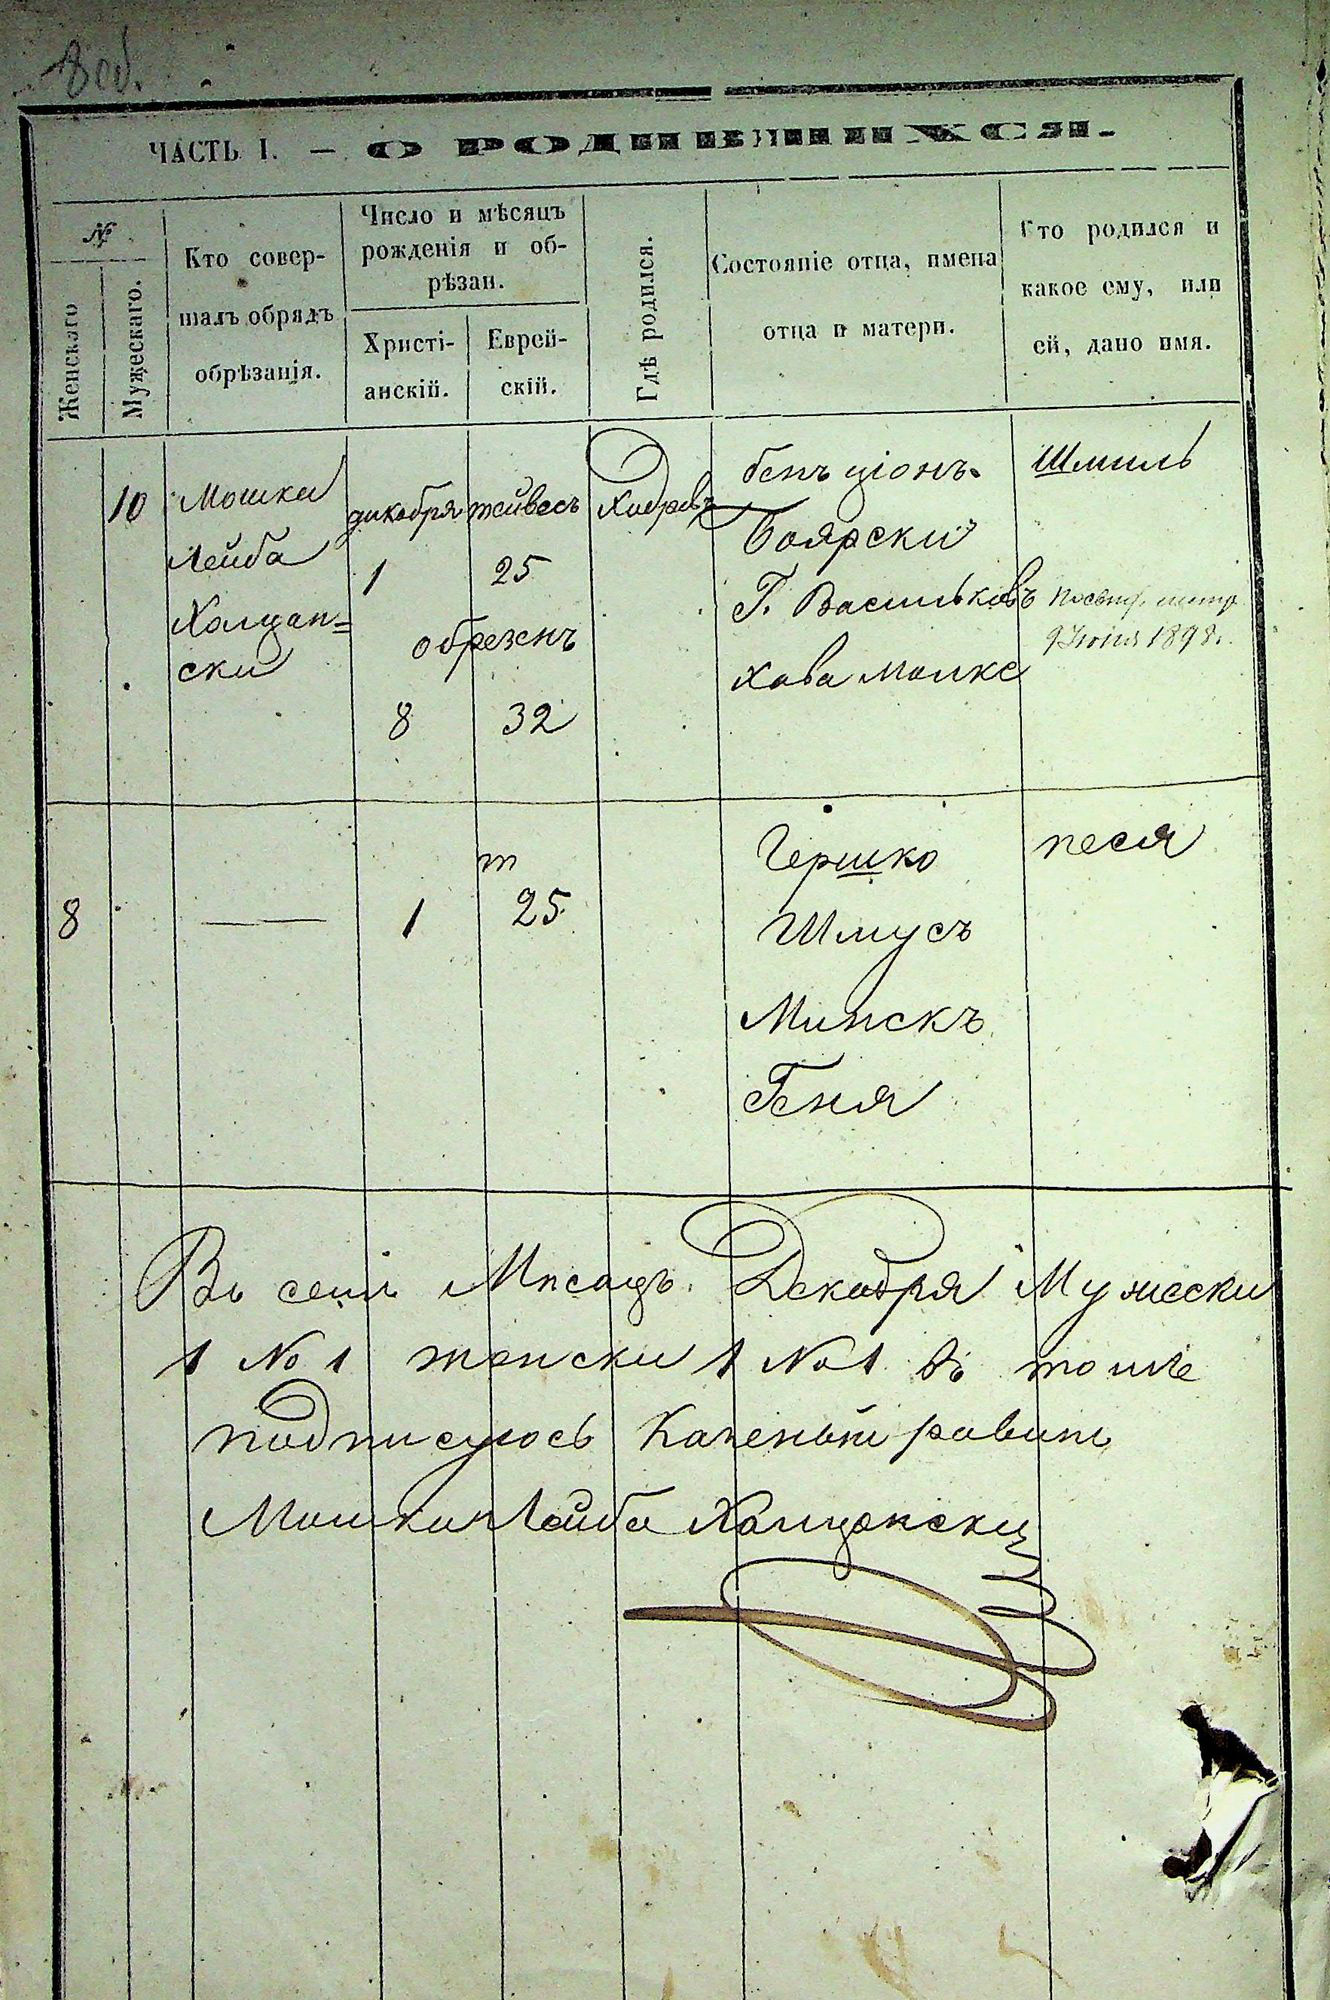 8 об.
ЧАСТЬ I. — О РОДИВШИХСЯ.
№
Женскаго
Мужескаго.
Кто совер-
шалъ обрядъ
обрѣзанія.
Число и мѣсяцъ
рожденія и об-
рѣзан.
Христі-
анскій.
Еврей-
скій.
Гдѣ родился.
Состояніе отца, имена
отца и матери.
Кто родился и
какое ему, или
ей, дано имя.
10
Мошка
Лейба
Халцап=
ски
дикабря
1
тейвесъ
25
обрезенъ
8
32
бенъ ціонъ
Боярски
Г. Васильковъ
хава малке
Шмиль
9 Іюня 1898.
8
—
1
т
25
Гершко
Шмусъ
Минскъ
Геня
песя
Въ семъ Мисацъ Декабря Мужески
1 № 1 женски 1 № 1 въ томъ
подписуюсь Казеный равинъ
Мошка Лейба Халцапски